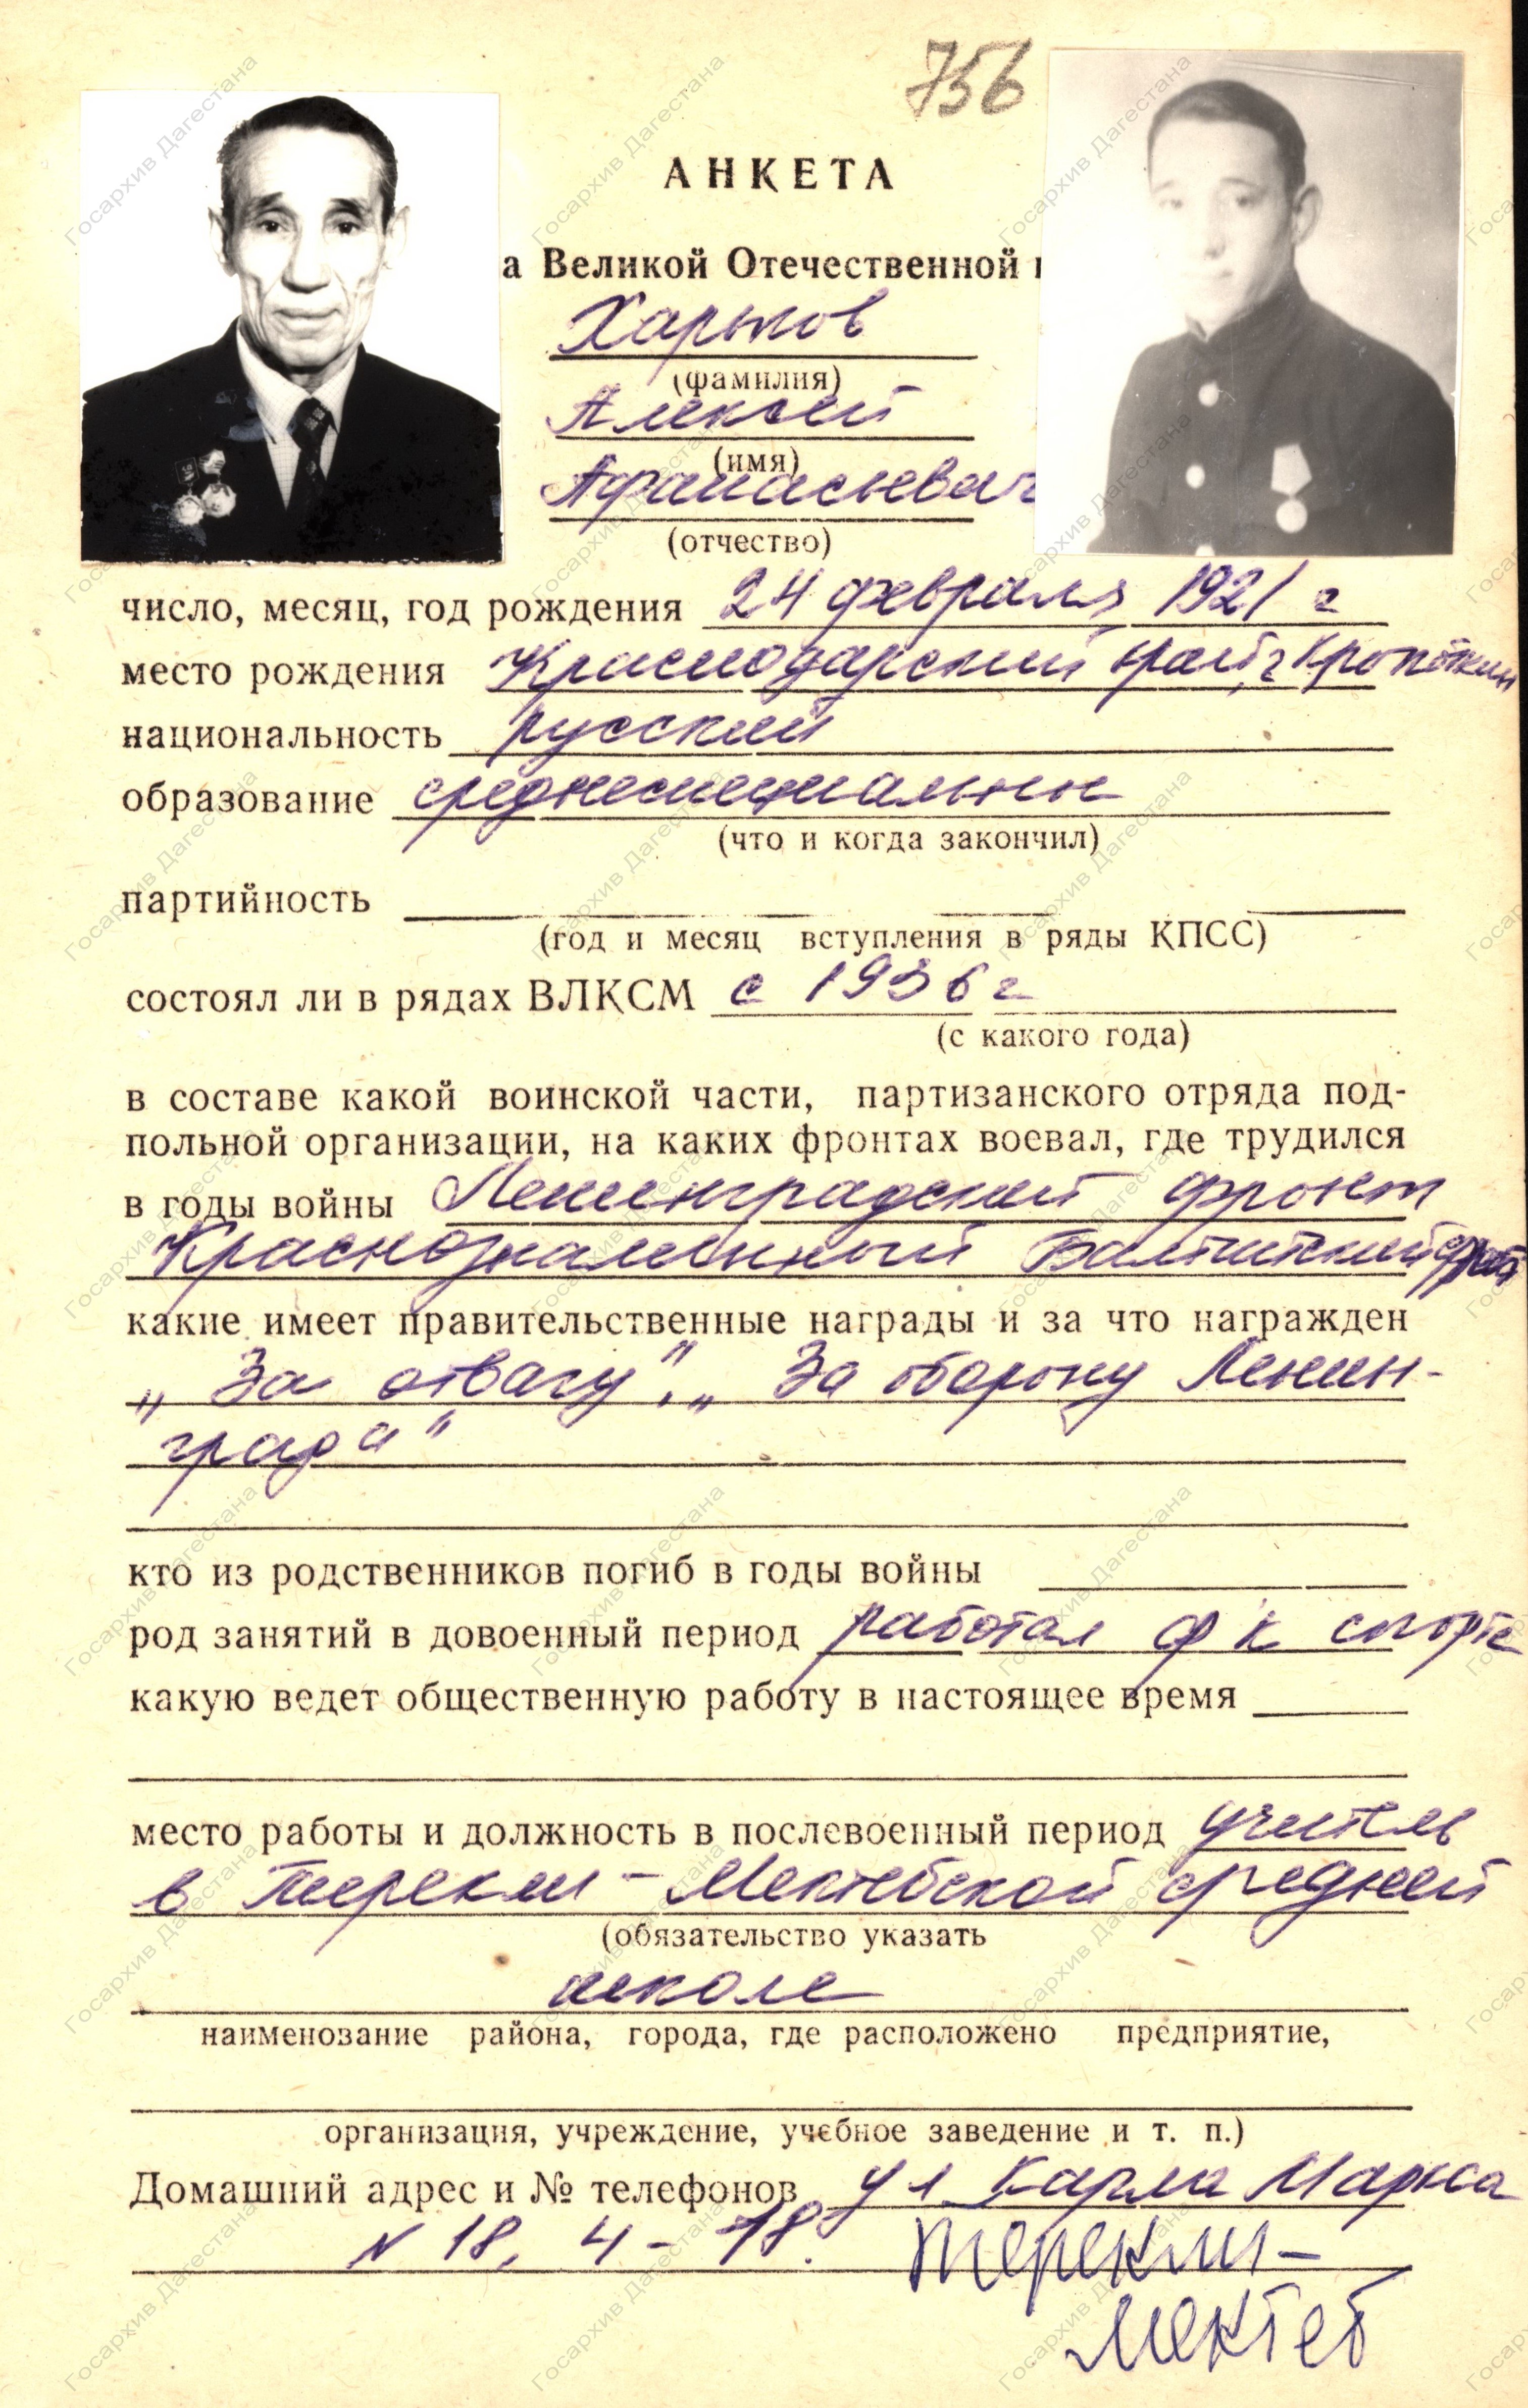 756
АНКЕТА
а Великой Отечественной
Харьков
(фамилия)
Алексей
(имя)
Афанасьевич
(отчество)
число, месяц, год рождения 24 февраля 1921 г
место рождения Краснодарский край, г Кропоткин
национальность русский
образование среднеспециальн
(что и когда закончил)
партийность
(год и месяц вступления в ряды КПСС)
состоял ли в рядах ВЛКСМ с 1936 г
(с какого года)
в составе какой воинской части, партизанского отряда под-
польной организации, на каких фронтах воевал, где трудился
в годы войны Ленинградский фронт
Краснознаменный Балтийский флот
какие имеет правительственные награды и за что награжден
„За отвагу", „За оборону Ленин-
града"
кто из родственников погиб в годы войны
род занятий в довоенный период работал ф к спорте
какую ведет общественную работу в настоящее время
место работы и должность в послевоенный период учитель
в Терекли-Мектебской средней
(обязательство указать
школе
наименование района, города, где расположено предприятие,
организация, учреждение, учебное заведение и т. п.)
Домашний адрес и № телефонов ул Карла Маркса
N 18, 4-18.
Терекли-
Мектеб
Госархив Дагестана